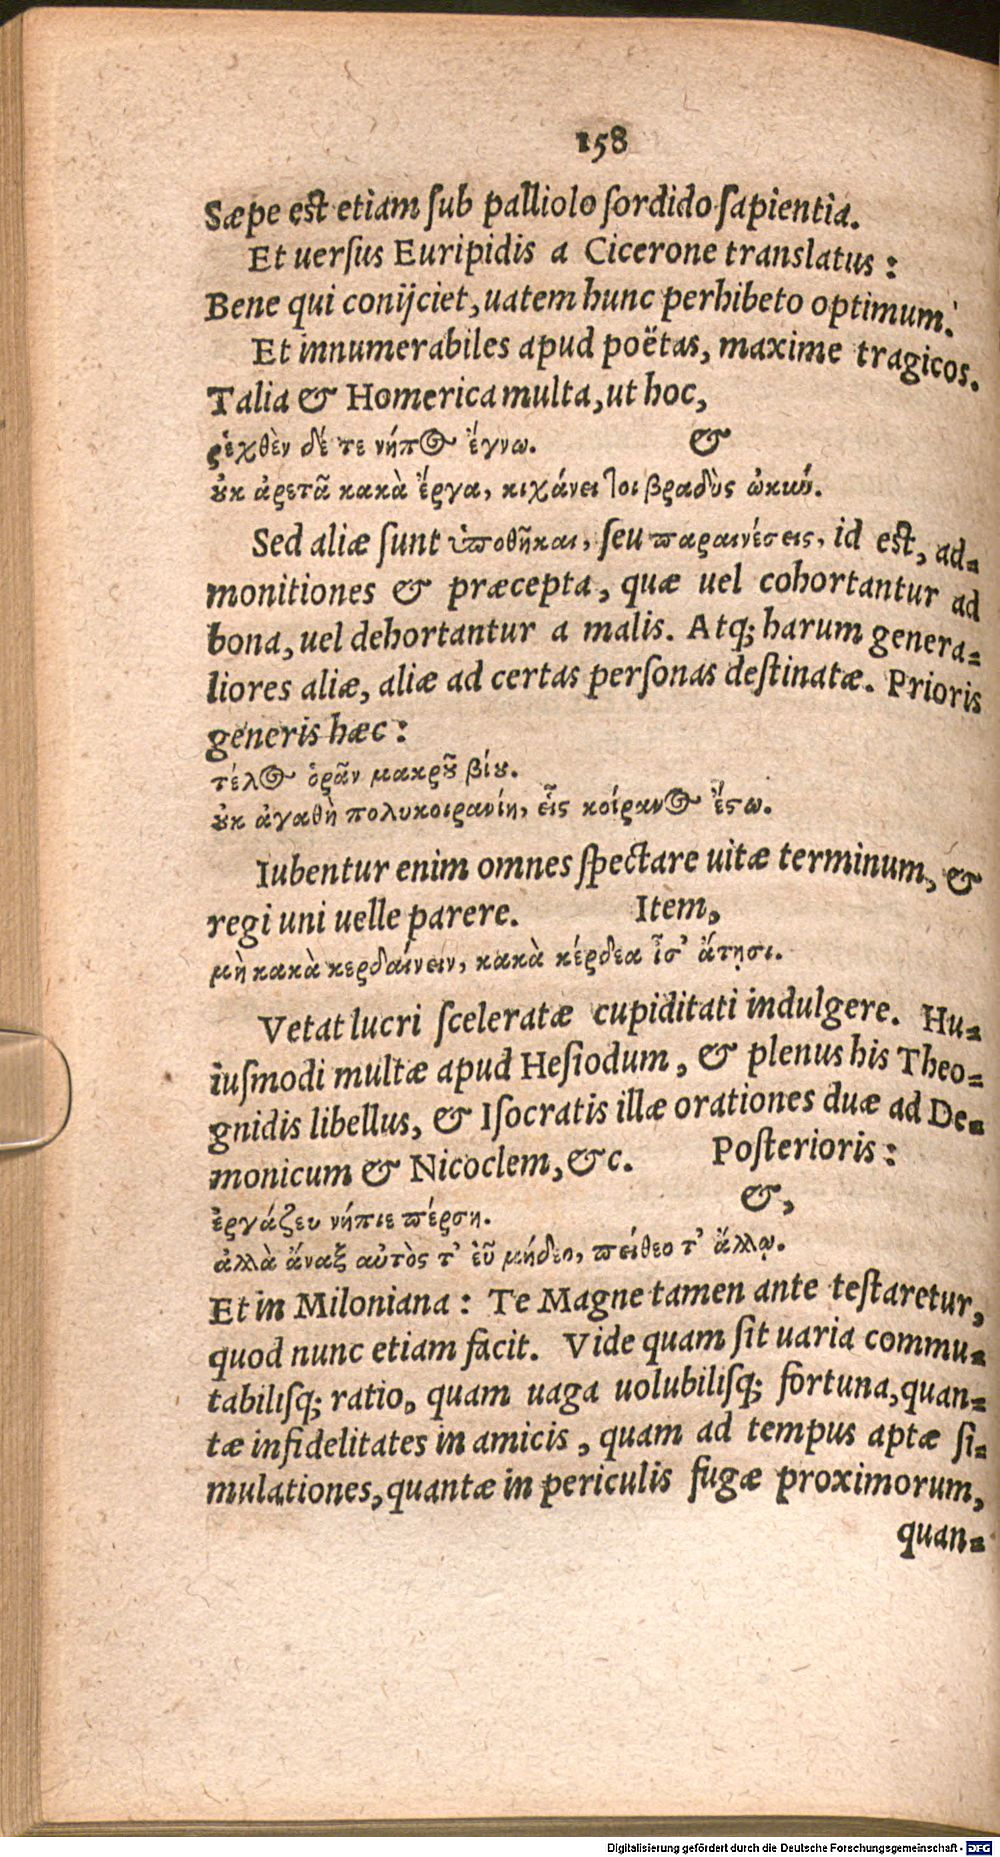 158
Sæpe est etiam ſub palliolo ſordido ſapientia.
Et uerſus Euripidis a Cicerone translatus:
Bene qui conijciet, uatem hunc perhibeto optimum.
Et innumerabiles apud poëtas, maxime tragicos.
Talia & Homerica multa, ut hoc,
ῥεχθὲν δέ τε νήπιος ἔγνω. &
οὐκ ἀρετᾶ κακὰ ἔργα, κιχάνει τοι βραδὺς ὠκιώ.
Sed aliæ ſunt ὑποθῆκαι, ſeu παραινέσεις, id est, ad=
monitiones & præcepta, quæ uel cohortantur ad
bona, uel dehortantur a malis. Atq; harum genera=
liores aliæ, aliæ ad certas perſonas deſtinatæ. Prioris
generis hæc:
τέλος ὁρᾶν μακροῦ βίου.
οὐκ ἀγαθὴ πολυκοιρανίη, εἷς κοίρανος ἔστω.
Iubentur enim omnes ſpectare uitæ terminum, &
regi uni uelle parere. Item,
μὴ κακὰ κερδαίνειν, κακὰ κέρδεα ἶσ᾽ ἄτῃσι.
Vetat lucri ſceleratæ cupiditati indulgere. Hu=
iuſmodi multæ apud Heſiodum, & plenus his Theo=
gnidis libellus, & Iſocratis illæ orationes duæ ad De=
monicum & Nicoclem, &c. Poſterioris:
ἐργάζευ νήπιε πέρση. &,
ἀλλὰ ἄναξ αὐτὸς τ᾽ εὖ μήδεο, πείθεο τ᾽ ἄλλῳ.
Et in Miloniana: Te Magne tamen ante teſtaretur,
quod nunc etiam facit. Vide quam ſit uaria commu=
tabiliſq; ratio, quam uaga uolubiliſq; fortuna, quan=
tæ infidelitates in amicis, quam ad tempus aptæ ſi=
mulationes, quantæ in periculis fugæ proximorum,
quan=
Digitalisierung gefördert durch die Deutsche Forschungsgemeinschaft - DFG